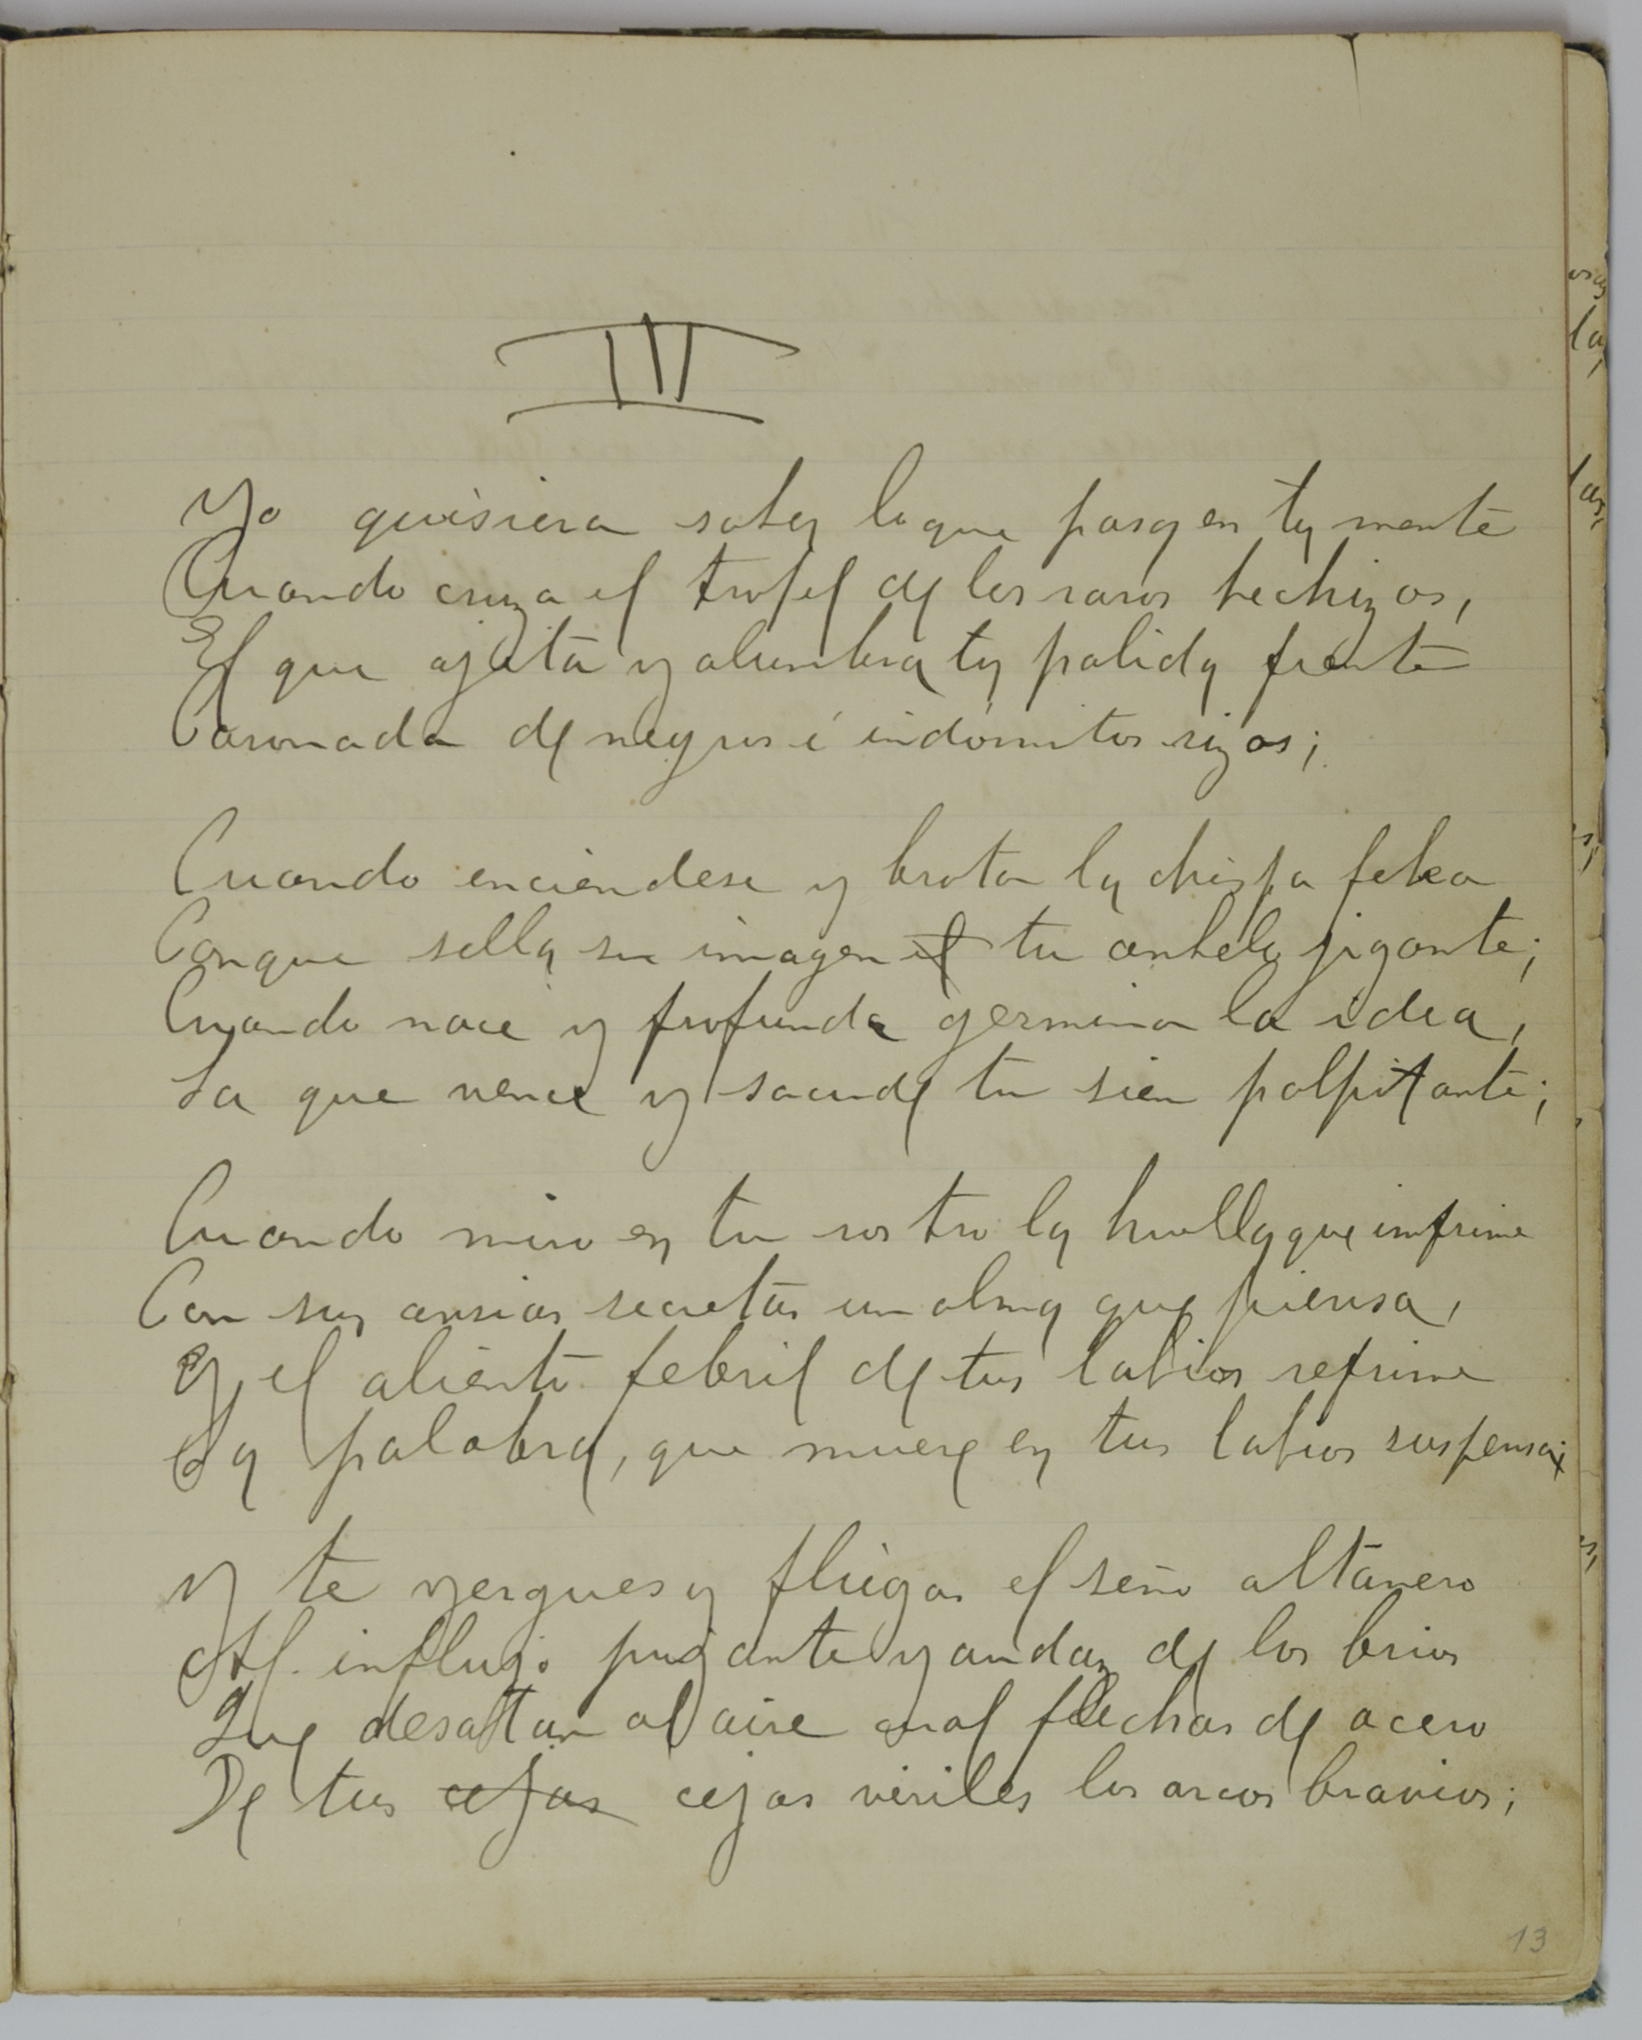 III
Yo quisiera saber lo que pasa en tu mente
Cuando cruza el tropel de los raros hechizos,
El que ajita y alumbra tu palida frente
Coronada de negros é indómitos rizos;
Cuando enciendese y brota la chispa febea
Conque sella su imagen el tu anhelo jigante;
Cuando nace y profunda germina la idea,
La que vence y sacude tu sien palpitante;
Cuando miro en tu rostro la huella que imprime
Con sus ansias secretas un alma que piensa,
Y el aliento febril de tus labios reprime
La palabra, que muere en tus labios suspensa;
Y te yergues y pliegas el seño altanero
Al influjo pujante y audaz de los brios
Que desatan al aire cual flechas de acero
De tus cejas cejas viriles los arcos bravios;
13